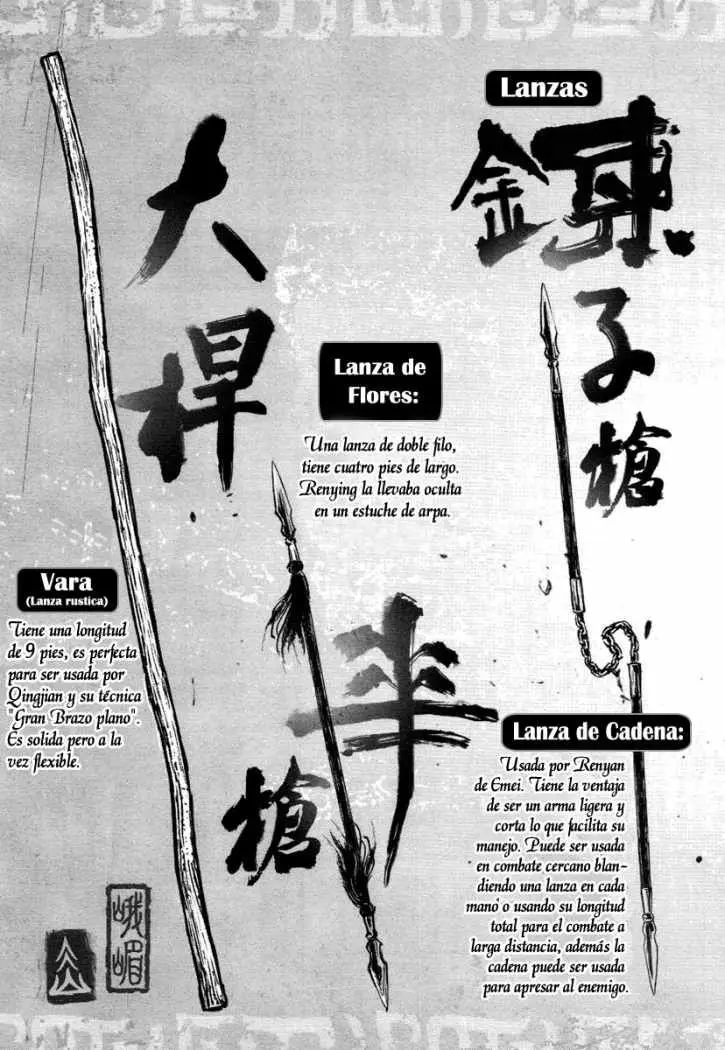 Lanzas
大
桿
鍊
子
槍
Lanza de
Flores:
Una lanza de doble filo,
tiene cuatro pies de largo.
Renying la llevaba oculta
en un estuche de arpa.
半
槍
Vara
(Lanza rustica)
Tiene una longitud
de 9 pies, es perfecta
para ser usada por
Qingjian y su técnica
"Gran Brazo plano".
Es solida pero a la
vez flexible.
Lanza de Cadena:
Usada por Renyan
de Emei. Tiene la ventaja
de ser un arma ligera y
corta lo que facilita su
manejo. Puede ser usada
en combate cercano blan-
diendo una lanza en cada
mano o usando su longitud
total para el combate a
larga distancia, además la
cadena puede ser usada
para apresar al enemigo.
峨
嵋